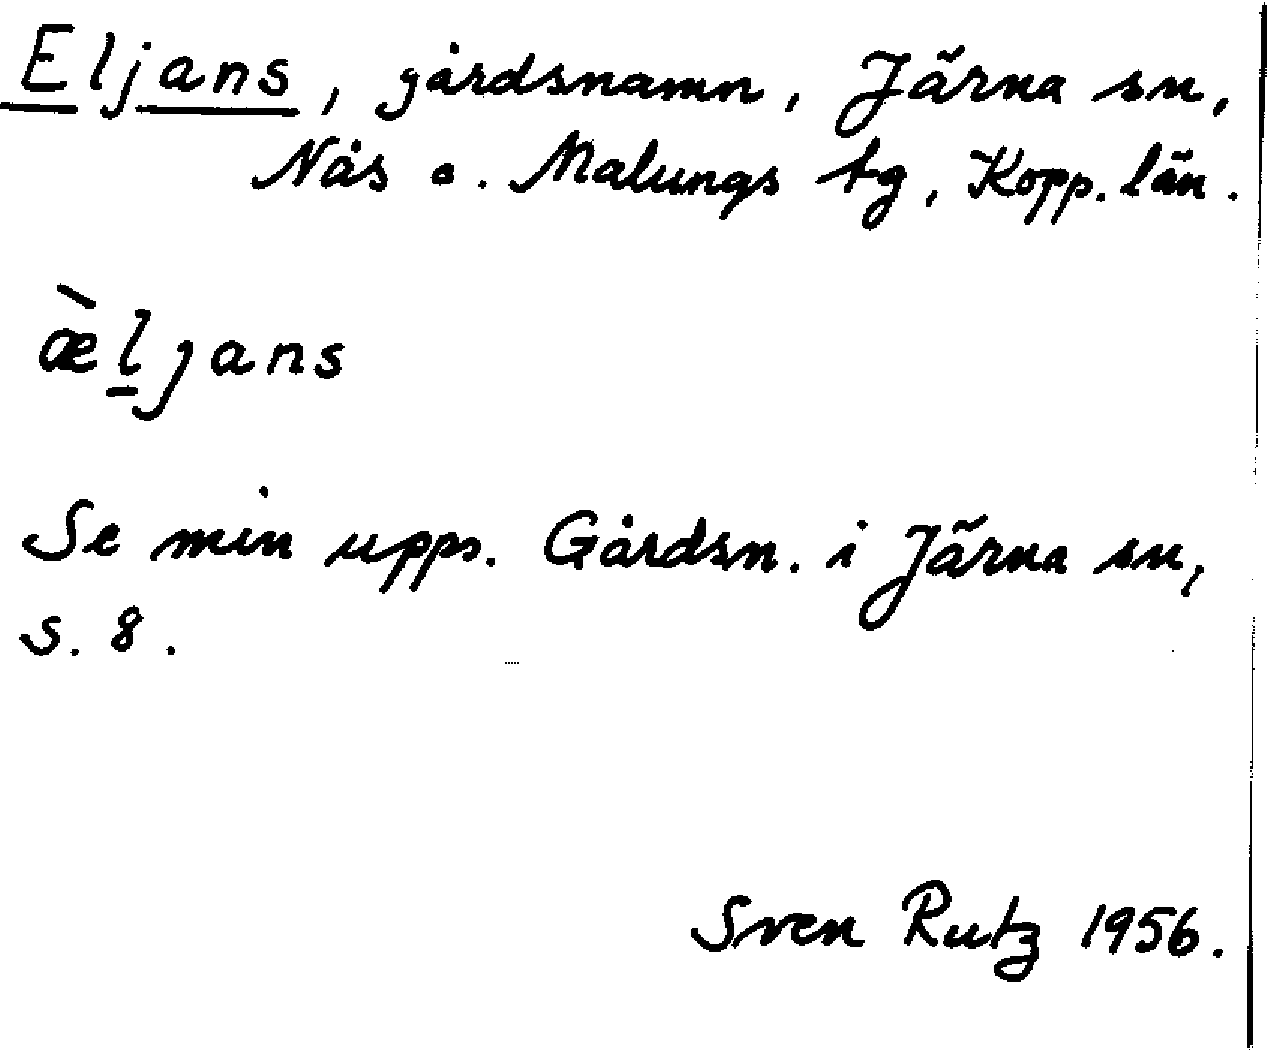 Eljans, gårdsnamn, Järna sn,
Nås o. Malungs tg, Kopp. län.
æ̀l̲jans
Se min upps. Gårdsn. i Järna sn,
s. 8.
Sven Rutz 1956.